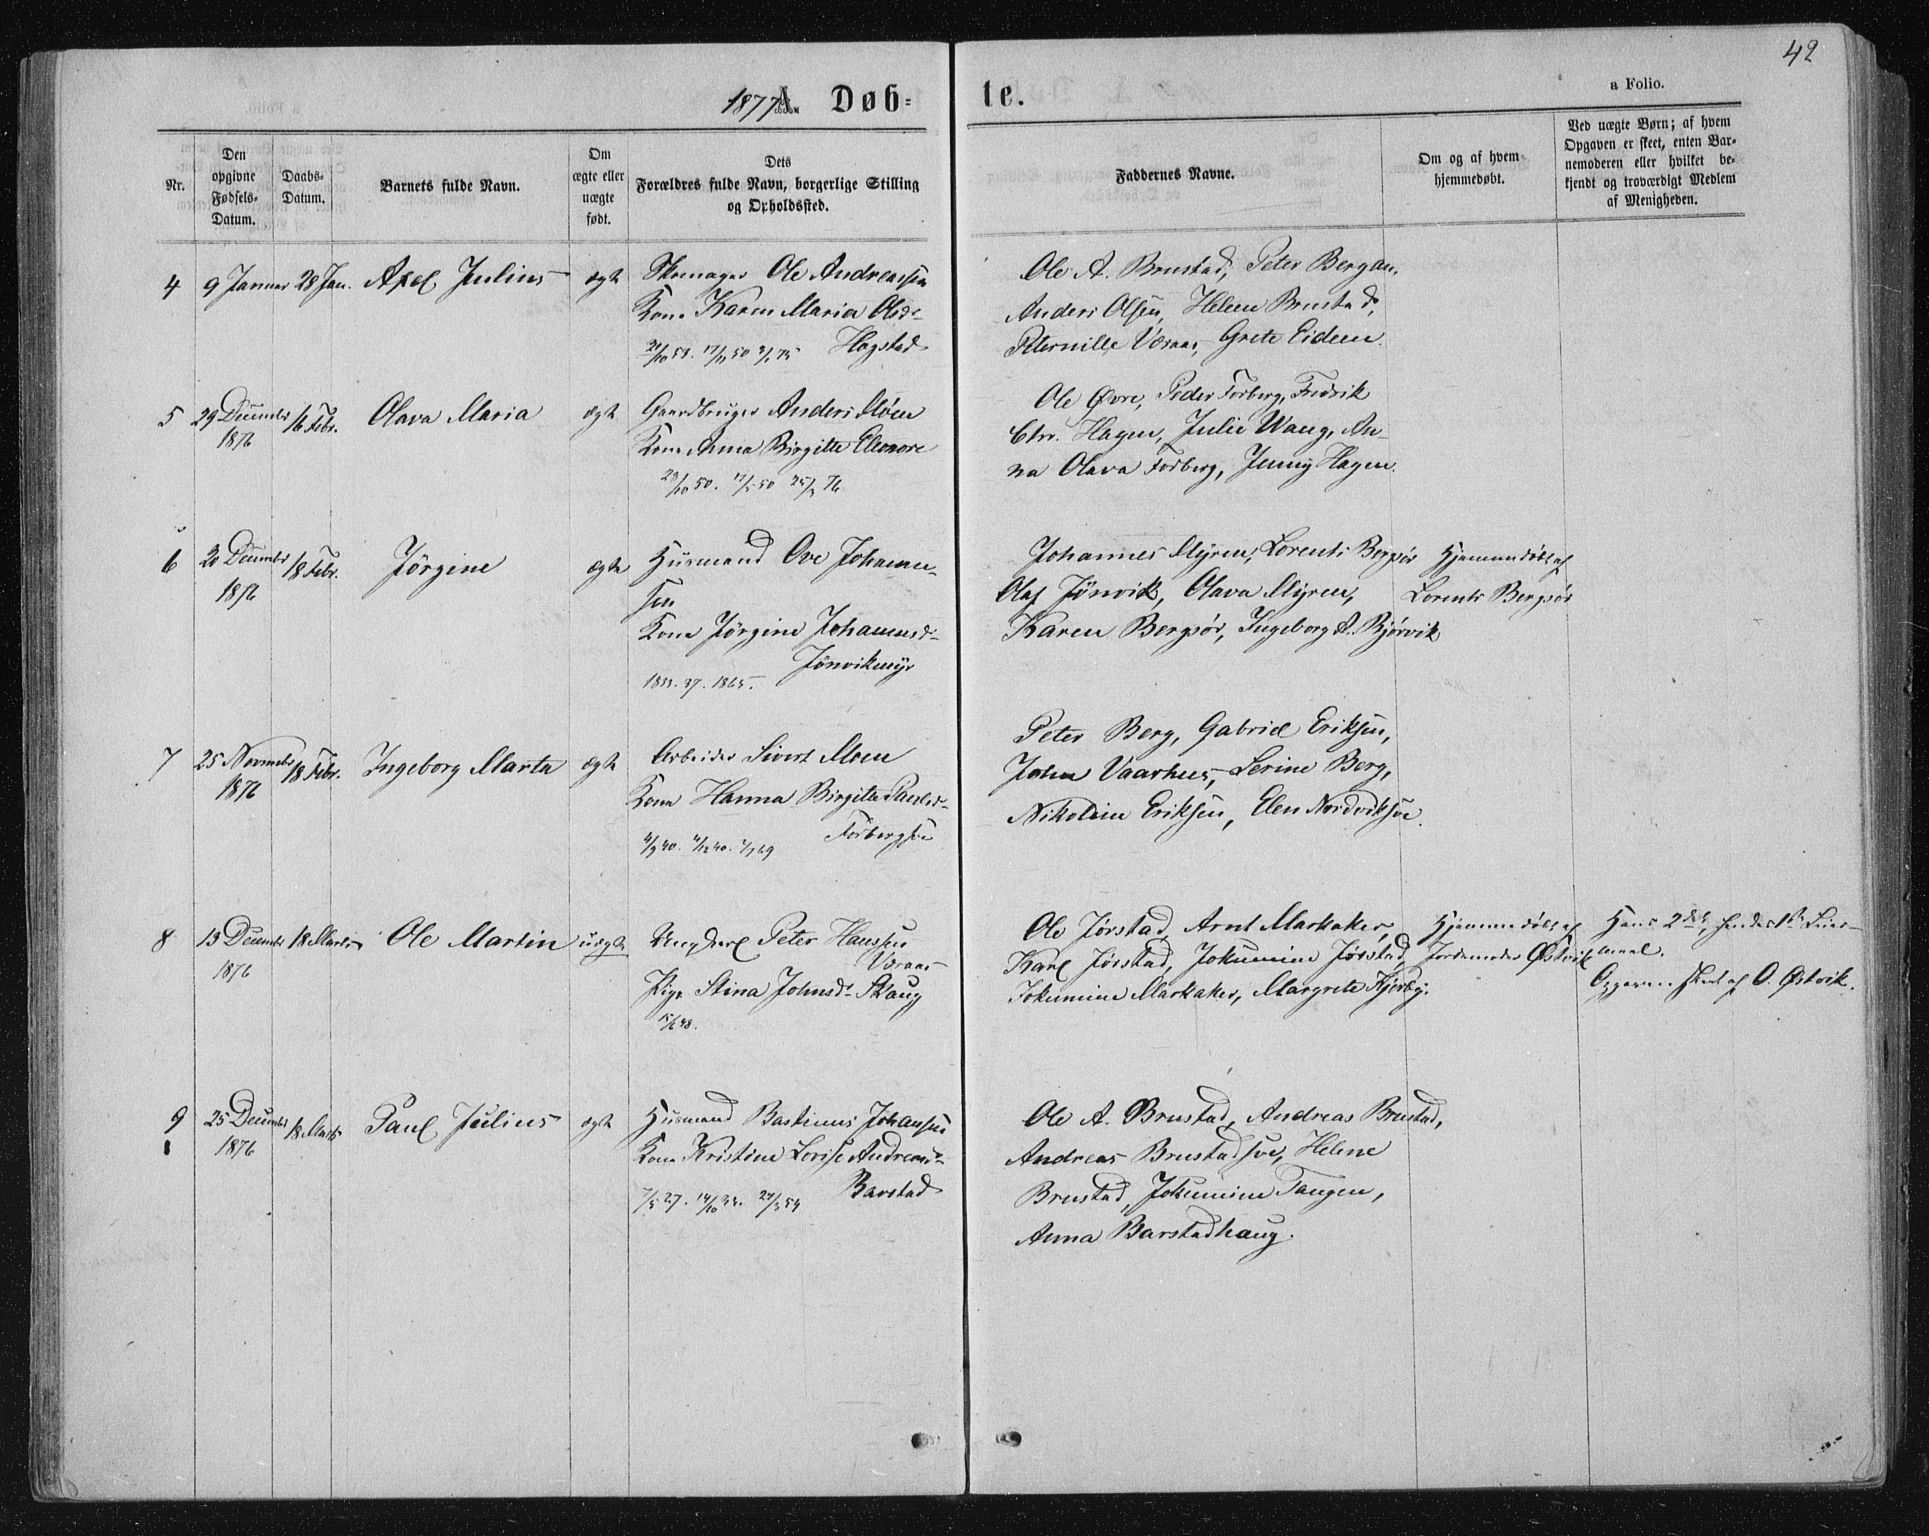 42
1877 A Døb-
te.
a Folio.
Nr.
Den
opgivne
Fødsels-
Datum.
Daabs-
Datum.
Barnets fulde Navn.
Om
ægte eller
uægte
født.
Dets
Forældres fulde Navn, borgerlige Stilling
og Opholdssted.
Faddernes Navne.
Om og af hvem
hjemmedøbt.
Ved uægte Børn; af hvem
Opgaven er skeet, enten Bar-
nemoderen eller hvilket be-
kjendt og troværdigt Medlem
af Menigheden.
4 9 Januar 28 Jan. Axel Julius ægte
Skomager Ole Andreassen
Kone Karen Maria Olsdr
Hagstad
Ole A. Brustad, Peter Bergan,
Anders Olsen, Helene Brustad,
Peternille Væraas, Grete Eidem.
5 29 December 16 Febr. Olava Maria ægte
1876
Gaardbruger Anders Moen
Kone Anna Birgitte Eleonore
Ole Øvre, Peder Forberg, Fredrik
Chr. Hagen, Julie Wang, An-
na Olava Forberg, Jenny Hagen.
6 20 December 18 Febr. Jørgine ægte
1876
Husmand Ove Johannes-
sen
Kone Jørgine Johannesdr
Jønvikmyr
37. 1865.
Johannes Myren, Lorents Bergsør
Olaf Jønvik, Olava Myren,
Karen Bergsør, Ingeborg A. Bjørvik
Hjemmedøbt af
Lorents Bergsør
7 25 November 18 Febr. Ingeborg Marta ægte
1876
Arbeider Sivert Moen
Kone Hanna Birgitte Paulsdr
Forbergsve
Peter Berg, Gabriel Eriksen,
John Vaarhus, Serine Berg,
Nikoline Eriksen, Elen Nordviksve.
8 13 December 18 Marts Ole Martin uægte
1876
Ungkarl Peter Hanssen
Væraas
Pige Stina Johnsdr Skaug
Ole Jørstad, Arnt Markaker,
Karl Jørstad, Jokumine Jørstad,
Jokumine Markaker, Margrete Kjerby.
Hjemmedøbt af
Jordemoder Østvik
Hans 2det, hendes 1ste Leier-
maal.
Opgaven skeet af O. Østvik.
9 25 December 18 Marts Paul Julius ægte
1876
Husmand Bastinus Johansen
Kone Kristine Lovise Andreasdr
Barstad
Ole A. Brustad, Andreas Brustad,
Andreas Brustadsve, Helene
Brustad, Jokumine Tangen,
Anna Barstadhaug.